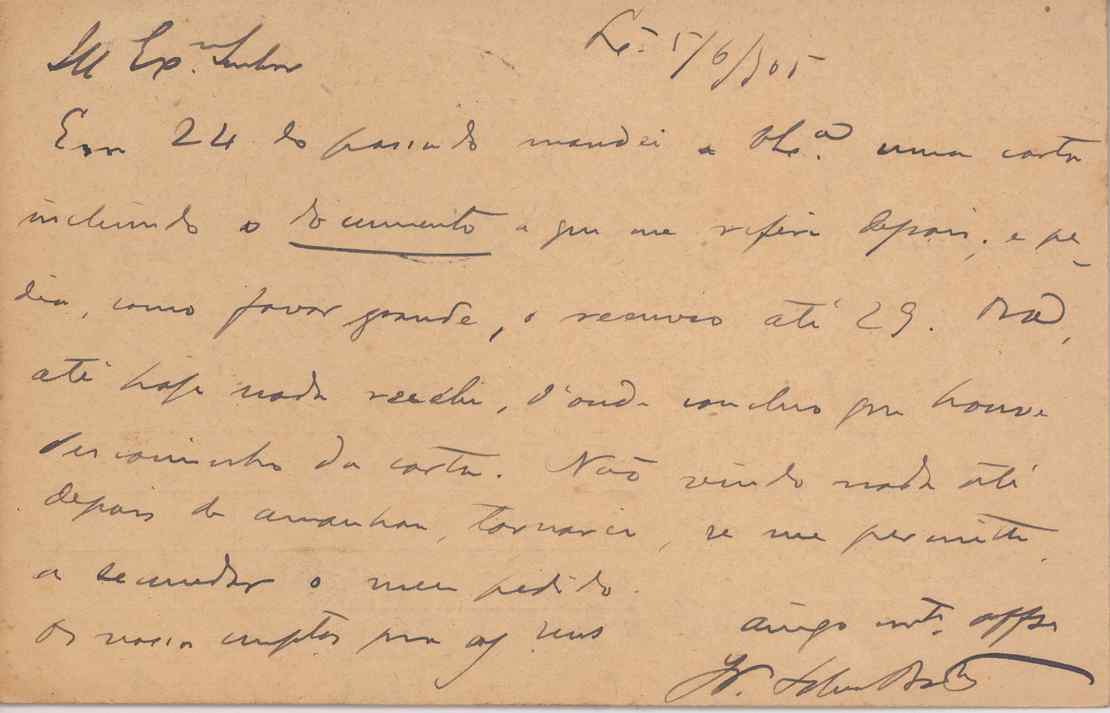 Ill Ex.mo Senhor
5/6/905
Em 24 do passado mandei a V. Ex.ª uma carta
incluindo o documento a que me referi depois, e pe-
dia, como favor grande, o recurso até 29. Ora,
até hoje nada recebi, d'onde concluo que houve
descaminho da carta. Não vindo nada até
depois de amanhan, tornarei, se me permitte,
a secundar o meu pedido.
Os nossos cumptos pra os seus
amigo mto.